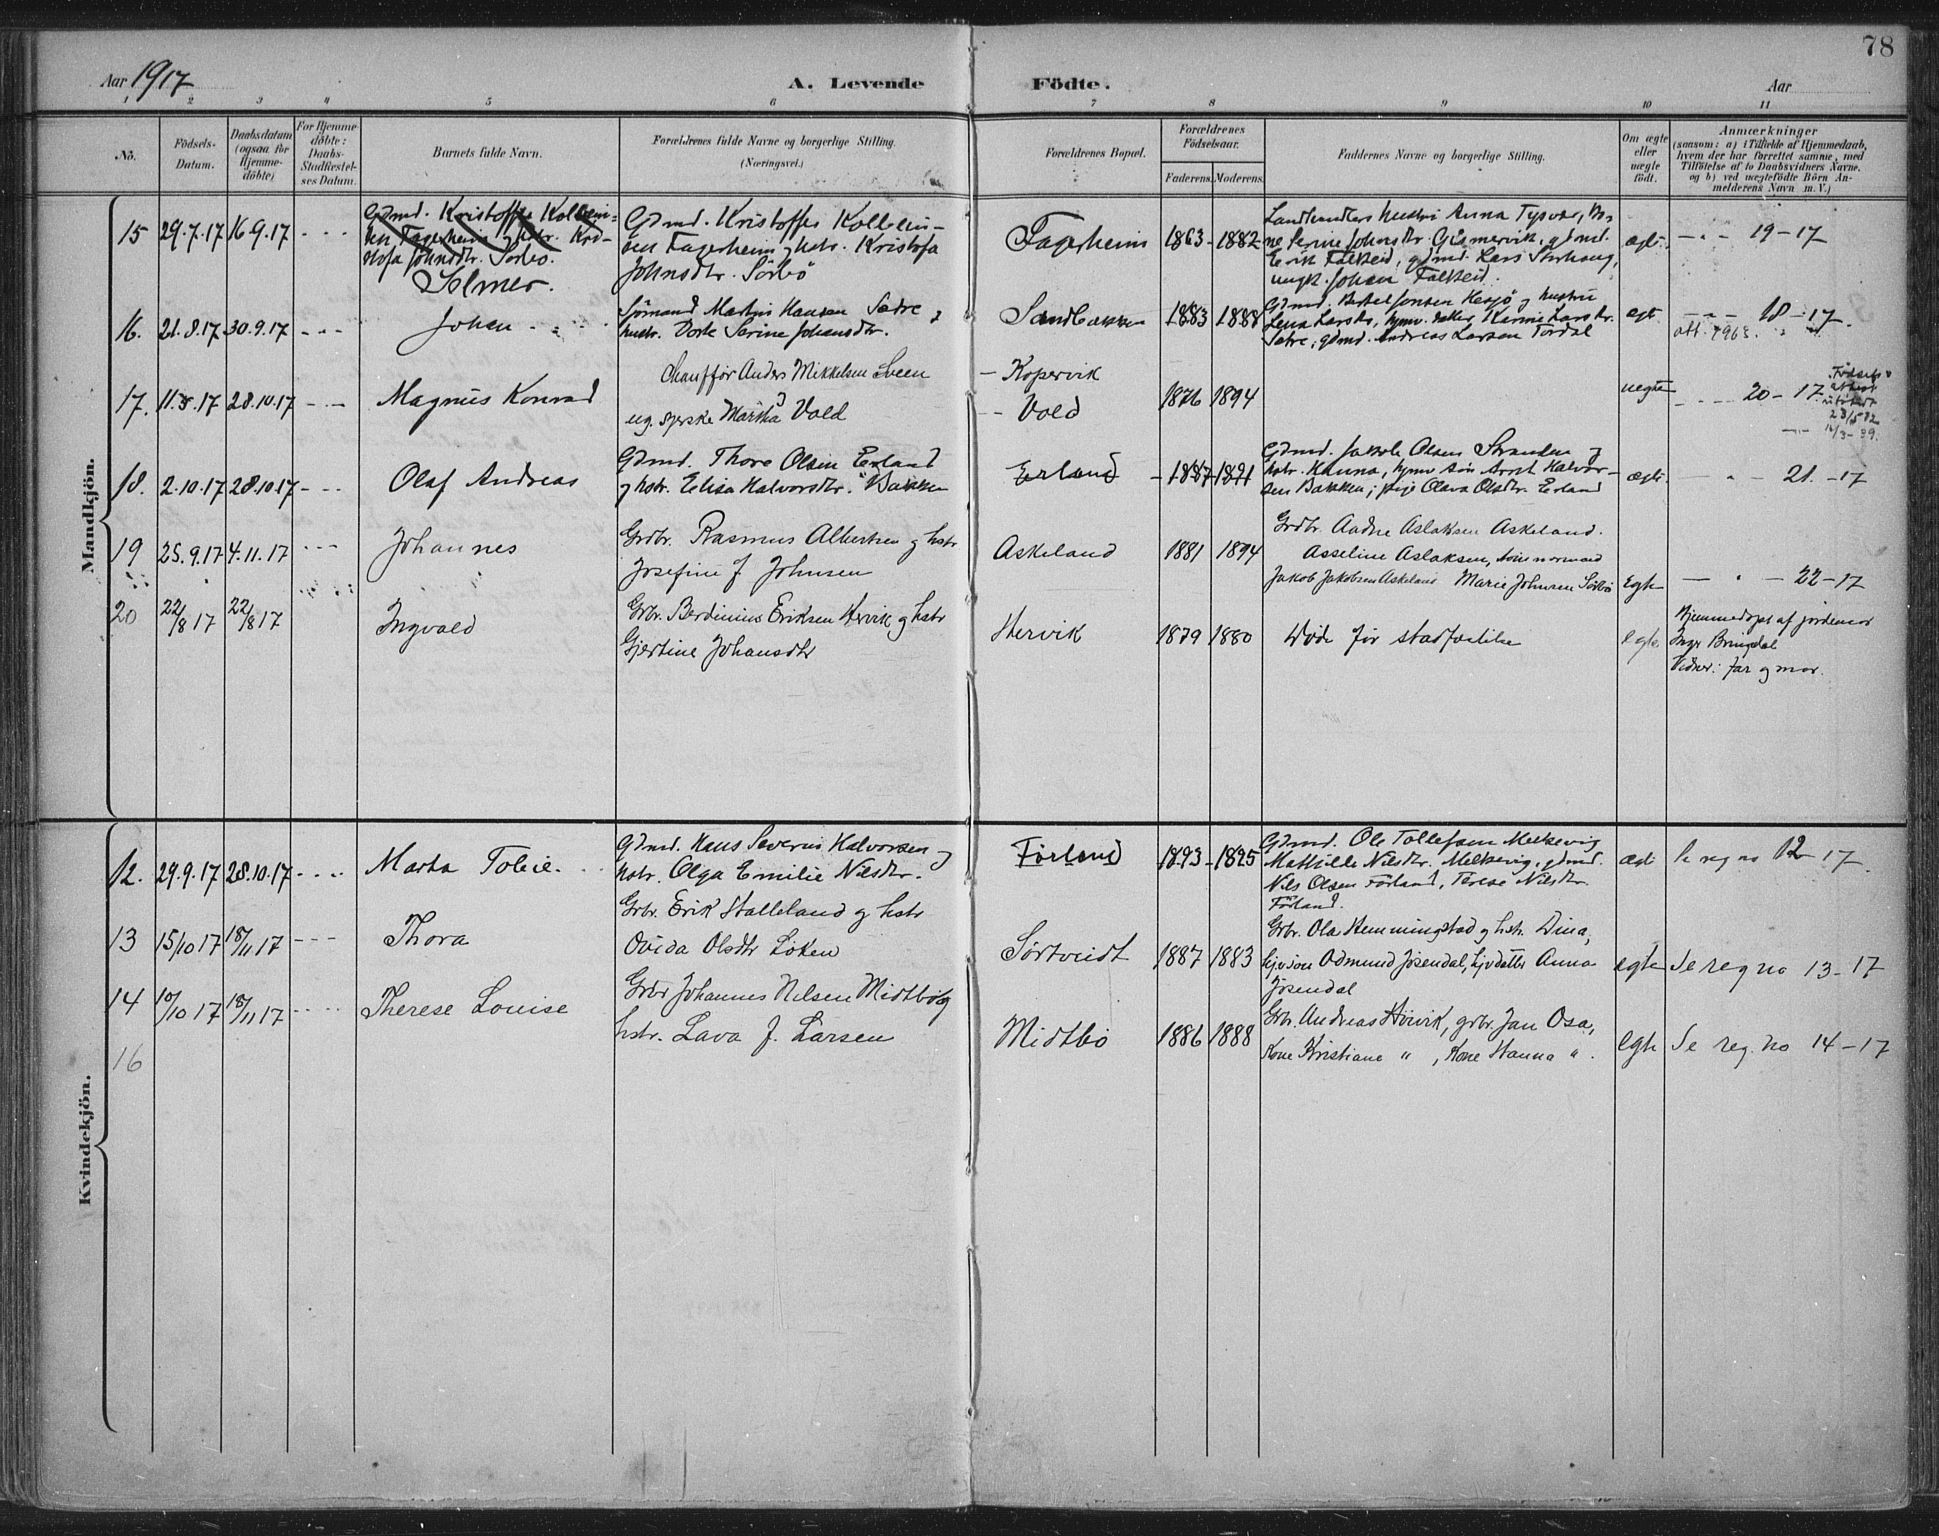 78
Aar 1917
A. Levende Födte.
Aar
1 2 3 4 5 6 7 8 9 10 11
No.
Födsels-Datum.
Daabsdatum (ogsaa for Hjemmedöbte)
For Hjemmedöbte: Daabs-Stadfæstelses Datum.
Barnets fulde Navn.
Forældrenes fulde Navne og borgerlige Stilling.
(Næringsvei.)
Forældrenes Bopæl.
Forældrenes Födselsaar.
Faderens. Moderens.
Faddernes Navne og borgerlige Stilling.
Om ægte eller uægte født.
Anmærkninger
(saasom: a) i Tilfælde af Hjemmedaab, hvem der har forrettet samme, med Tilföielse af to Daabsvidners Navne, og b) ved uægtefödte Börn Anmelderens Navn m. V.)
Mandkjön.
15 29.7.17 16.9.17
Gdmd. Kristoffer Kolbein-
sen Fagerheim og hstr. Kri-
stofa Johnsdtr. Sörbö.
Selmer.
Gdmd. Kristoffer Kolbein-
sen Fagerheim og hstr. Kristofa
Johnsdtr. Sörbö
Fagerheim 1863 - 1882
Landhandlers hustru Anna Tysvær,
Serine Johnsdtr. Gismervik, gdmd.
Erik Falkeid, gdmd. Lars Storhaug,
ungk. Johan Falkeid.
ægte - " - 19-17
16. 21.8.17 30.9.17 Johan
Sömand Martin Hansen Sætre &
hustr. Dorte Serine Johansdtr.
Sandbakken 1883 1888
Gdmd. Bertel Jonsen Hesjö og hustru
Lena Larsdtr, Karine Larsdtr.
Sætre, gdmd. Andreas Larsen Tordal
ægte 18-17.
att. 1963.
17. 11.5.17 28.10.17 Magnus Konrad
Chauffør Anders Mikkelsen Sveen
ug. syerske Martha Vold
- Kopervik
- Vold
1876 1894
uægte - 20-17
Födsels
attest
utstedt
- " - 12/3-39.
18. 2.10.17 28.10.17 Olaf Andreas
Gdmd. Thore Olsen Erland
og hstr. Elisa Halvorsdtr. Bakken
Erland - 1887 - 1891
Gdmd. Jakob Olsen Stranden og
hstr. Hanna, gdmd. søn Arnt Halvor-
sen Bakken; pige Olava Olsdtr. Erland
ægte - " - 21.-17
19 25.9.17 4.11.17 Johannes
Grdbr. Rasmus Albertsen og hstr
Josefine J. Johnsen
Askeland 1881 1894
Grdbr. Aadne Aslaksen Askeland.
Asseline Aslaksen,
Jakob Jakobsen Askeland Marie Johnsen Sörbö
Egte - " - 22-17
20 22/8 17 22/8 17 Ingvald
Grbr. Berdinius Eriksen Hervik og hstr
Gjertine Johansdtr
Hervik 1879 1880
Döde før stadfæstelse
Egte
Hjemmedøpt af jordemor
Inga Bringdal
Vidner: far og mor.
Kvindekjön.
12. 29.9.17 28.10.17 Marta Tobie.
Gdmd. Hans Severin Halvorsen og
hstr. Olga Emilie Nilsdtr.
Førland 1893 - 1895
Gdmd. Ole Tollefsen Melkevig
Mathilde Nilsdtr. Melkevig, gdmd.
Nils Olsen Førland, Terese Nilsdtr.
Førland.
ægte Se reg no 12-17
13 15/10 17 18/11 17 Thora
Grbr. Erik Stalleland og hstr
Ovida Olsdtr Løken
Sørtveidt 1887 1883
Grbr. Ola Hemmingstad og hstr. Dina,
Gjvsøn Odmund Jøsendal, Gjvdatter Anna
Jøsendal
egte Se reg no 13-17
14 10/10 17 18/11 17 Therese Louise
Grbr Johannes Nilsen Midtbø og
hstr. Lava J. Larsen
Midtbø 1886 1888
Grbr. Andreas Hervik, grbr. Jan Osa,
Kone Kristiane " , Kone Hanna " .
Egte Se reg. no 14-17
16